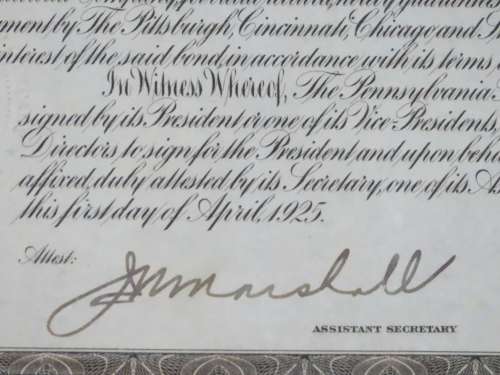 ment by The Pittsburgh, Cincinnati, Chicago and St
interest of the said bond, in accordance with its terms
In Witness Whereof, The Pennsylvania
signed by its President or one of its Vice-Presidents
Directors to sign for the President and upon beh
affixed, duly attested by its Secretary, one of its A
this first day of April, 1925.
Attest:
J M Marshall
ASSISTANT SECRETARY